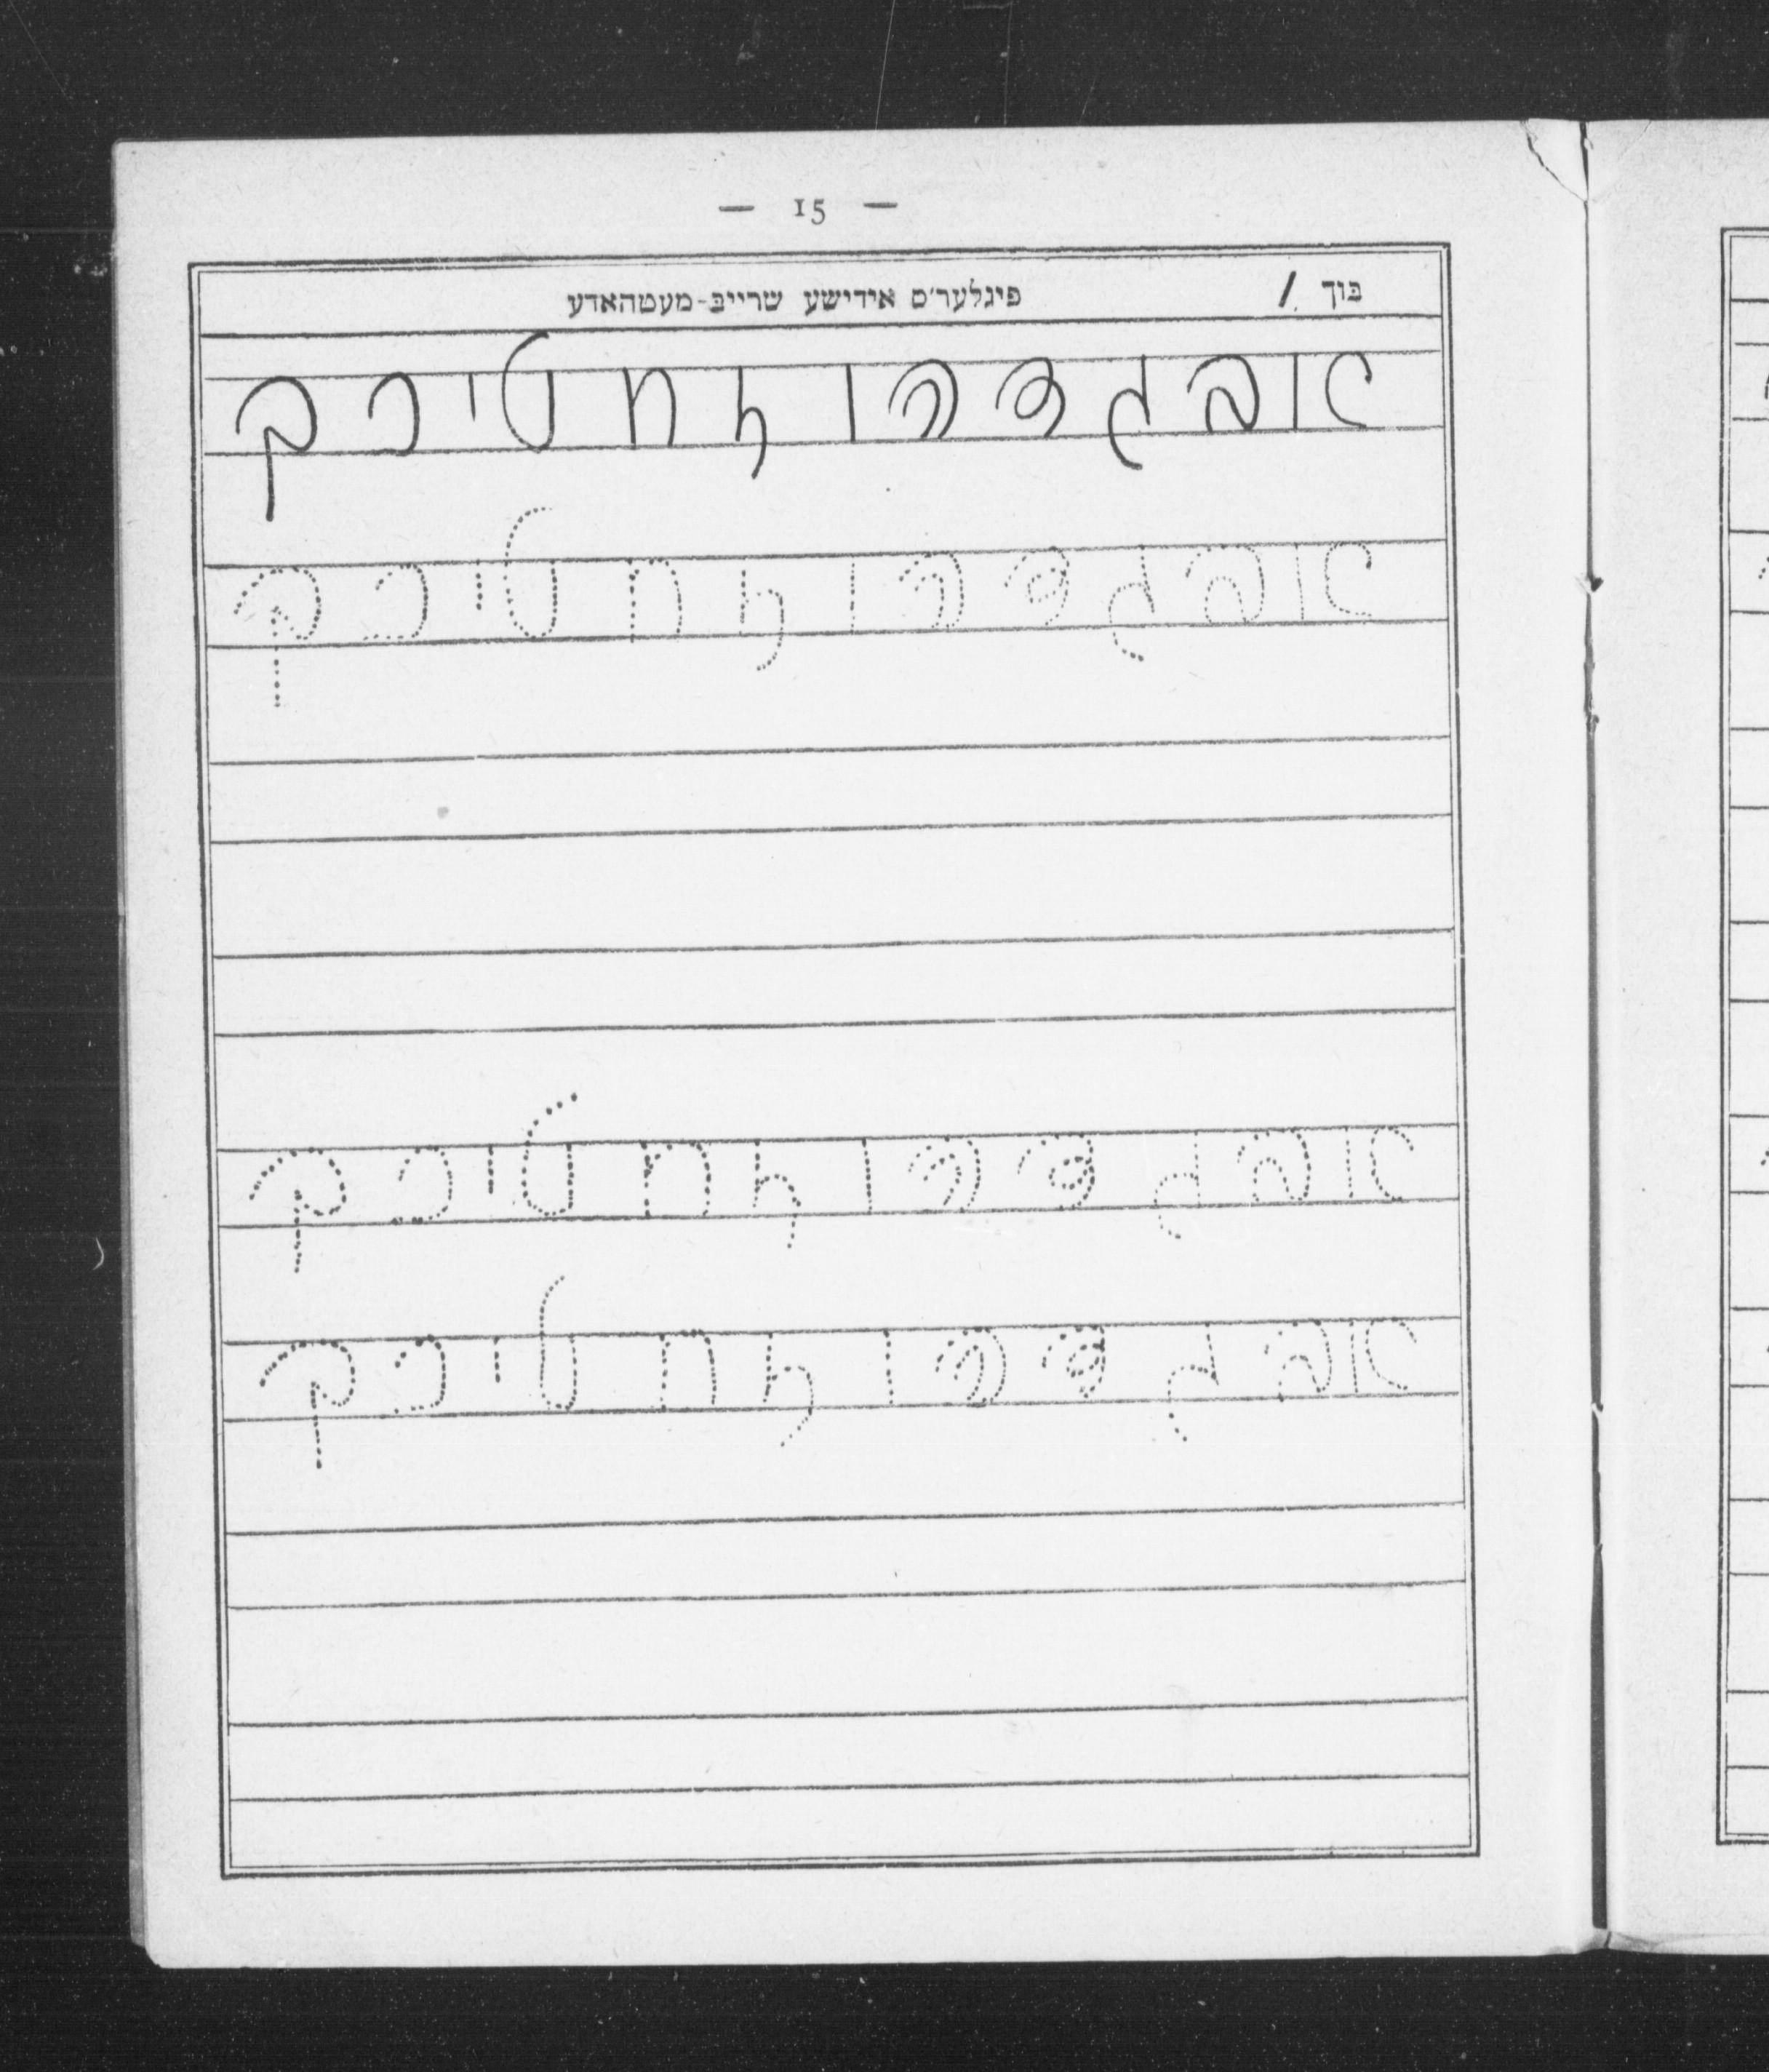 — 15 —
בוך 1.
פיגלער׳ס אידישע שרייב-מעטהאדע
א ב ג ד ה ו ז ח ט י כ ך
א ב ג ד ה ו ז ח ט י כ ך
א ב ג ד ה ו ז ח ט י כ ך
א ב ג ד ה ו ז ח ט י כ ך